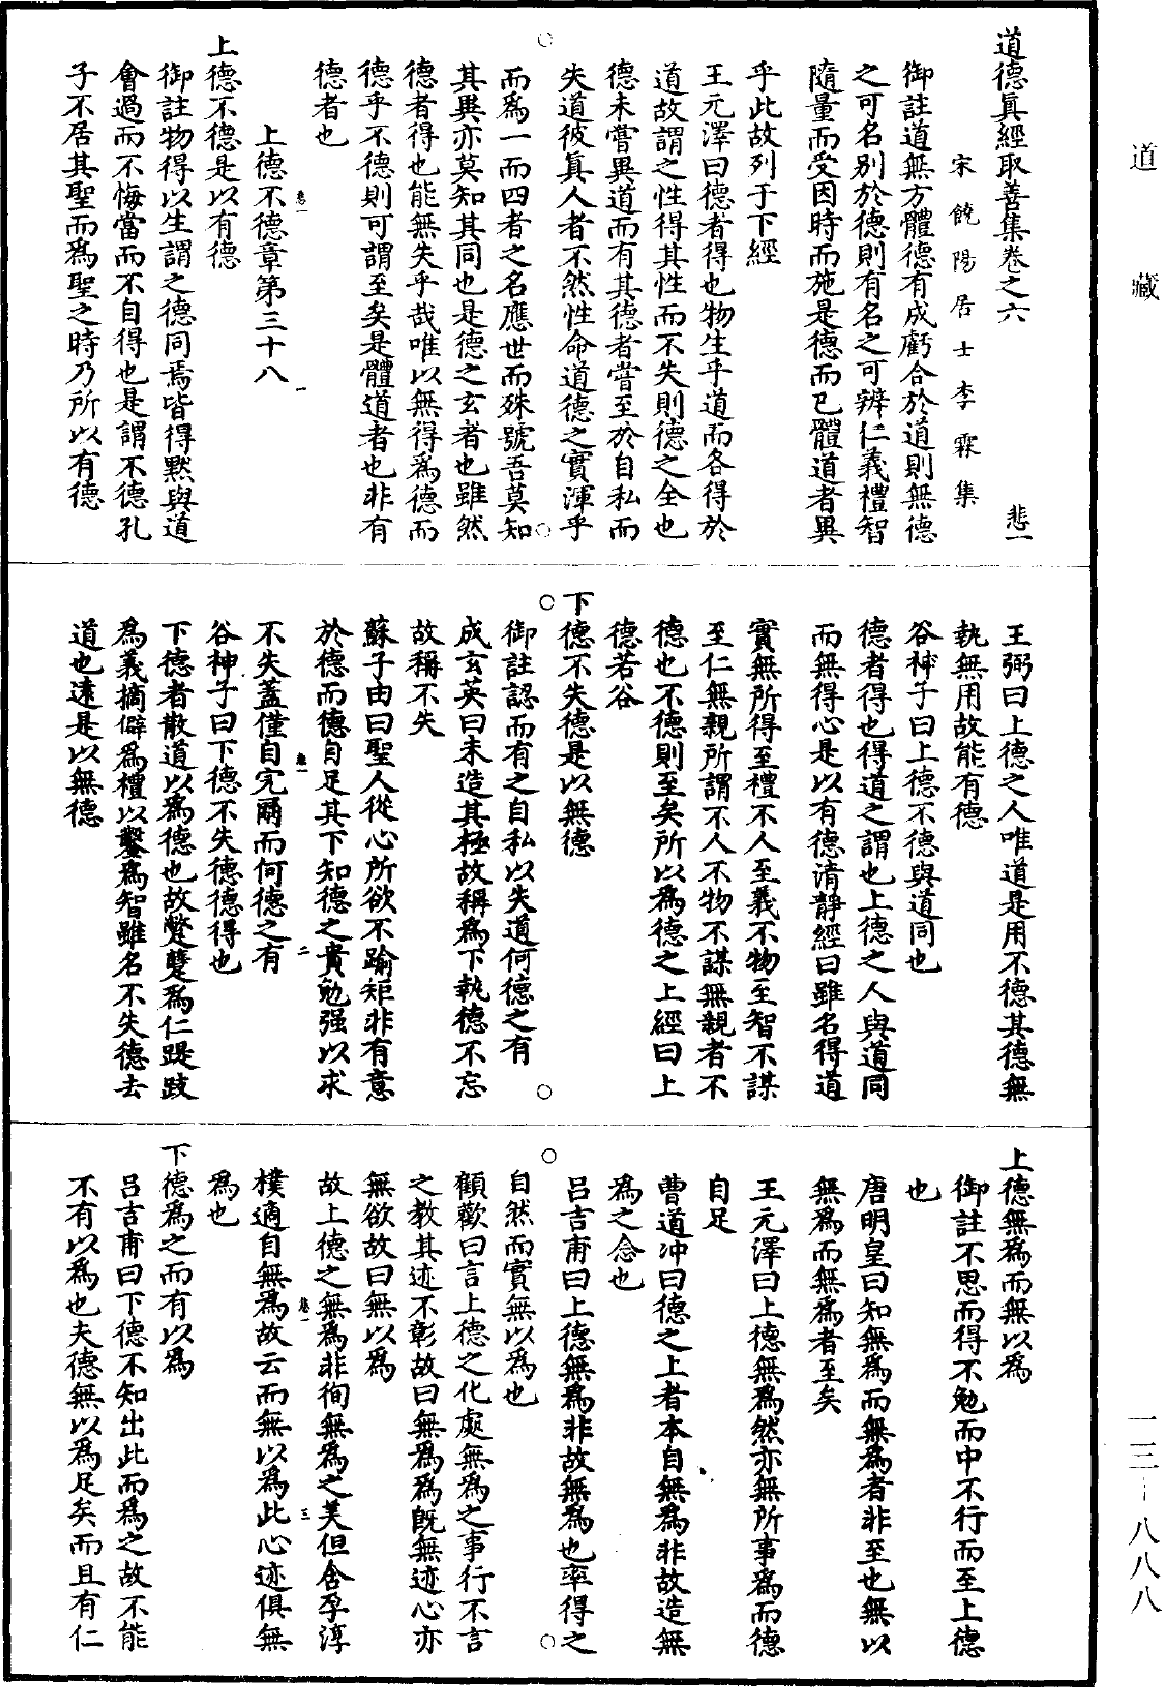 道藏
道德眞經取善集卷之六　悲一
宋饒陽居士李霖集
御註道無方體德有成虧合於道則無德
之可名別於德則有名之可辨仁義禮智
隨量而受因時而施是德而已體道者異
乎此故列于下經
王元澤曰德者得也物生乎道而各得於
道故謂之性得其性而不失則德之全也
德未嘗異道而有其德者嘗至於自私而
失道彼眞人者不然性命道德之實渾乎
而爲一而四者之名應世而殊號吾莫知
其異亦莫知其同也是德之玄者也雖然
德者得也能無失乎哉唯以無得爲德而
德乎不德則可謂至矣是體道者也非有
德者也
悲一　一
上德不德章第三十八
上德不德是以有德
御註物得以生謂之德同焉皆得默與道
會過而不悔當而不自得也是謂不德孔
子不居其聖而爲聖之時乃所以有德
王弼曰上德之人唯道是用不德其德無
執無用故能有德
谷神子曰上德不德與道同也
德者得也得道之謂也上德之人與道同
而無得心是以有德淸靜經曰雖名得道
實無所得至禮不人至義不物至智不謀
至仁無親所謂不人不物不謀無親者不
德也不德則至矣所以爲德之上經曰上
德若谷
下德不失德是以無德
御註認而有之自私以失道何德之有
成玄英曰未造其極故稱爲下執德不忘
故稱不失
蘇子由曰聖人從心所欲不踰矩非有意
於德而德自足其下知德之貴勉强以求
悲一　二
不失蓋僅自完爾而何德之有
谷神子曰下德不失德德得也
下德者散道以爲德也故蹩躠爲仁踶跂
爲義摘僻爲禮以鑿爲智雖名不失德去
道也遠是以無德
上德無爲而無以爲
御註不思而得不勉而中不行而至上德
也
唐明皇曰知無爲而無爲者非至也無以
無爲而無爲者至矣
王元澤曰上德無爲然亦無所事爲而德
自足
曹道冲曰德之上者本自無爲非故造無
爲之念也
呂吉甫曰上德無爲非故無爲也率得之
自然而實無以爲也
顧歡曰言上德之化處無爲之事行不言
之教其迹不彰故曰無爲爲旣無迹心亦
無欲故曰無以爲
故上德之無爲非徇無爲之美但含孕淳
悲一　三
樸適自無爲故云而無以爲此心迹俱無
爲也
下德爲之而有以爲
呂吉甫曰下德不知出此而爲之故不能
不有以爲也夫德無以爲足矣而且有仁
一三—八八八